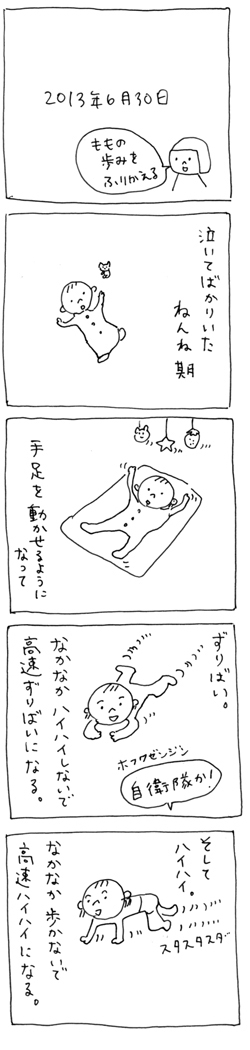 2013年6月30日
ももの
歩みを
ふりかえる
泣いてばかりいた
ねんね期
手足を動かせるように
なって
ずりばい。
なかなかハイハイしないで
高速ずりばいになる。
ホフクゼンシン
自衛隊か!
そして
ハイハイ。
スタスタスタ
なかなか歩かないで
高速ハイハイになる。